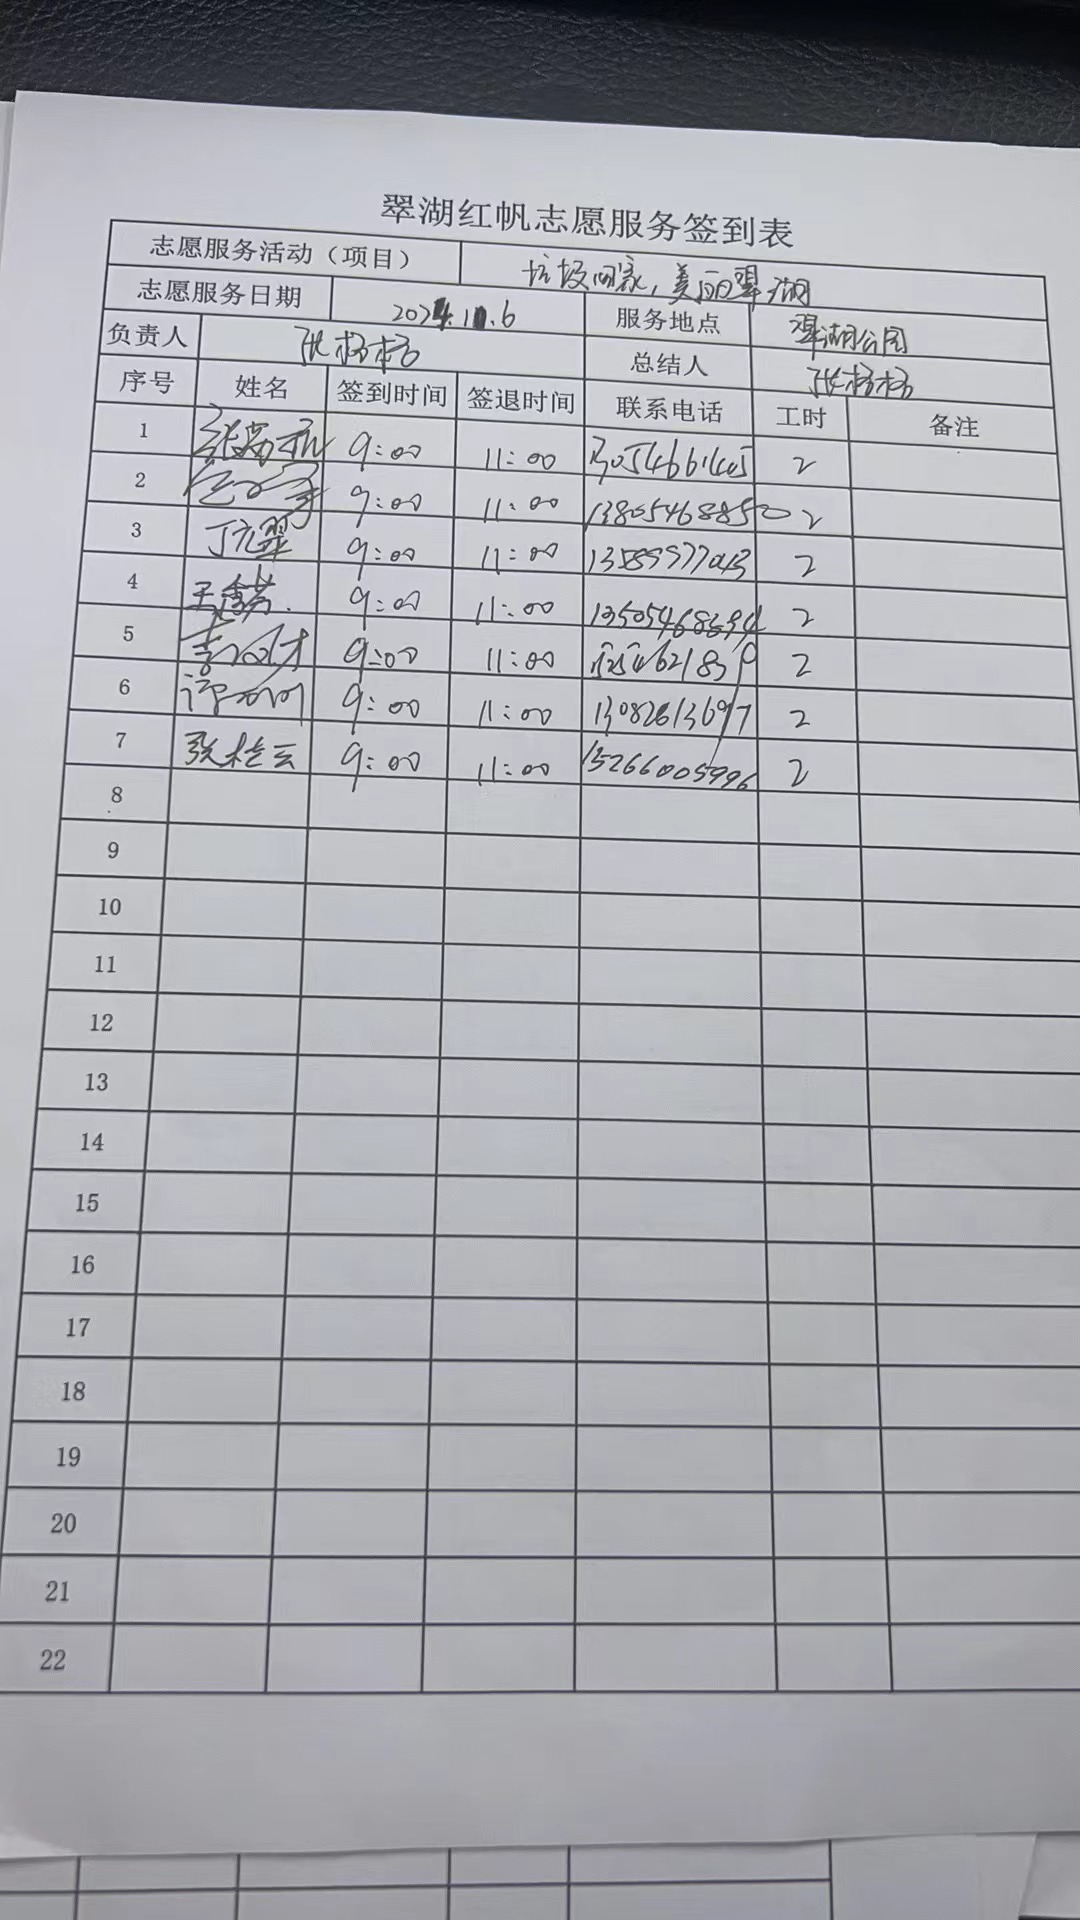 翠湖红帆志愿服务签到表
志愿服务活动（项目） 垃圾回家，美丽翠湖
志愿服务日期 2024.11.6 服务地点 翠湖公园
负责人 张杨杨 总结人 张杨杨
序号 姓名 签到时间 签退时间 联系电话 工时 备注
1 9:00 11:00 2
2 9:00 11:00 13805468850 2
3 丁元翠 9:00 11:00 13589977043 2
4 9:00 11:00 13505468694 2
5 9:00 11:00 2
6 9:00 11:00 13082613697 2
7 张桂云 9:00 11:00 13266005996 2
8
9
10
11
12
13
14
15
16
17
18
19
20
21
22